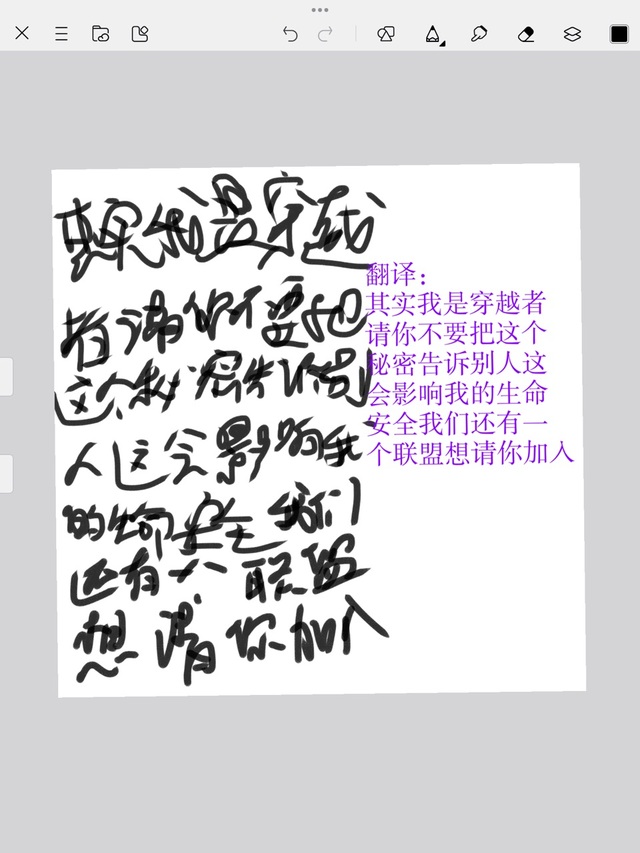 其实我是穿越
者请你不要把
这个秘密告诉别
人这会影响我
的生命安全我们
还有一个联盟
想请你加入
翻译：
其实我是穿越者
请你不要把这个
秘密告诉别人这
会影响我的生命
安全我们还有一
个联盟想请你加入